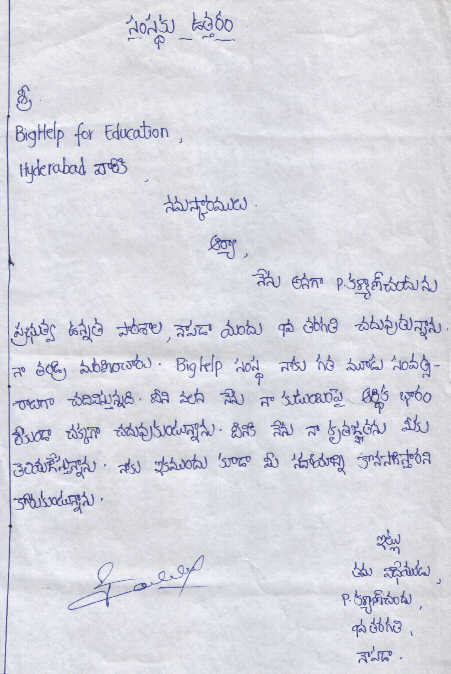 సంస్థకు ఉత్తరం
శ్రీ.
BigHelp for Education,
Hyderabad వారికి,
నమస్కారములు.
ఆర్యా,
నేను అనగా P.కళ్యాణ్‌చందును
ప్రభుత్వ ఉన్నత పాఠశాల, నాపడా నుందు తరగతి చదువుతున్నాను.
నా తండ్రి మరణించారు. BigHelp సంస్థ నాకు గత మూడు సంవత్స-
రాలుగా చదివిస్తున్నది. దీని వలన నేను నా కుటుంబంపై ఆర్థిక భారం
లేకుండా చక్కగా చదువుకుంటున్నాను. దీనికి నేను నా కృతజ్ఞతను మీకు
తెలియజేస్తున్నాను. నాకు ఇకముందు కూడా మీ సహాయాన్ని కొనసాగిస్తారని
కోరుకుంటున్నాను.
ఇట్లు
తమ విధేయుడు,
P.కళ్యాణ్‌చందు,
తరగతి,
నాపడా.